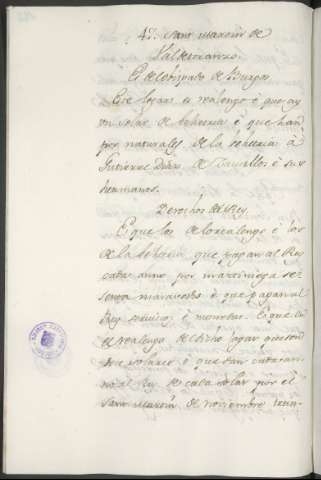 47. Sant Martin de
Valdelomanzo.
Es del obispado de Burgos
Este logar es realengo é que ay
un solar de behetria é que han
por naturales de la behetria á
Gutierre Diaz de Zavallos é sus
hermanos.
Derechos del Rey.
Es que los de lo realengo é los
de la behetria que pagan al Rey
cada anno por martiniega se-
senta maravedis é que pagan al
Rey servicios é monedas. Lo que es
de realengo de dicho logar que son
solares é que dan cada an-
no al Rey de cada solar por el
Sant Martin de noviembre